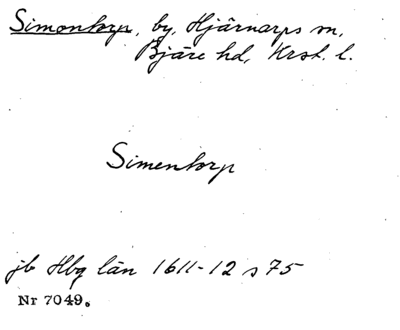 Simontorp, by, Hjärnarps sn,
Bjäre hd, Krst. l.
Simentorp
jb Hbg län 1611-12 s 75
Nr 7049.